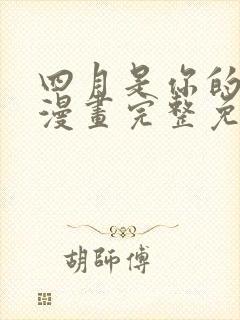 四月是你的
漫畫完整免
胡師傅